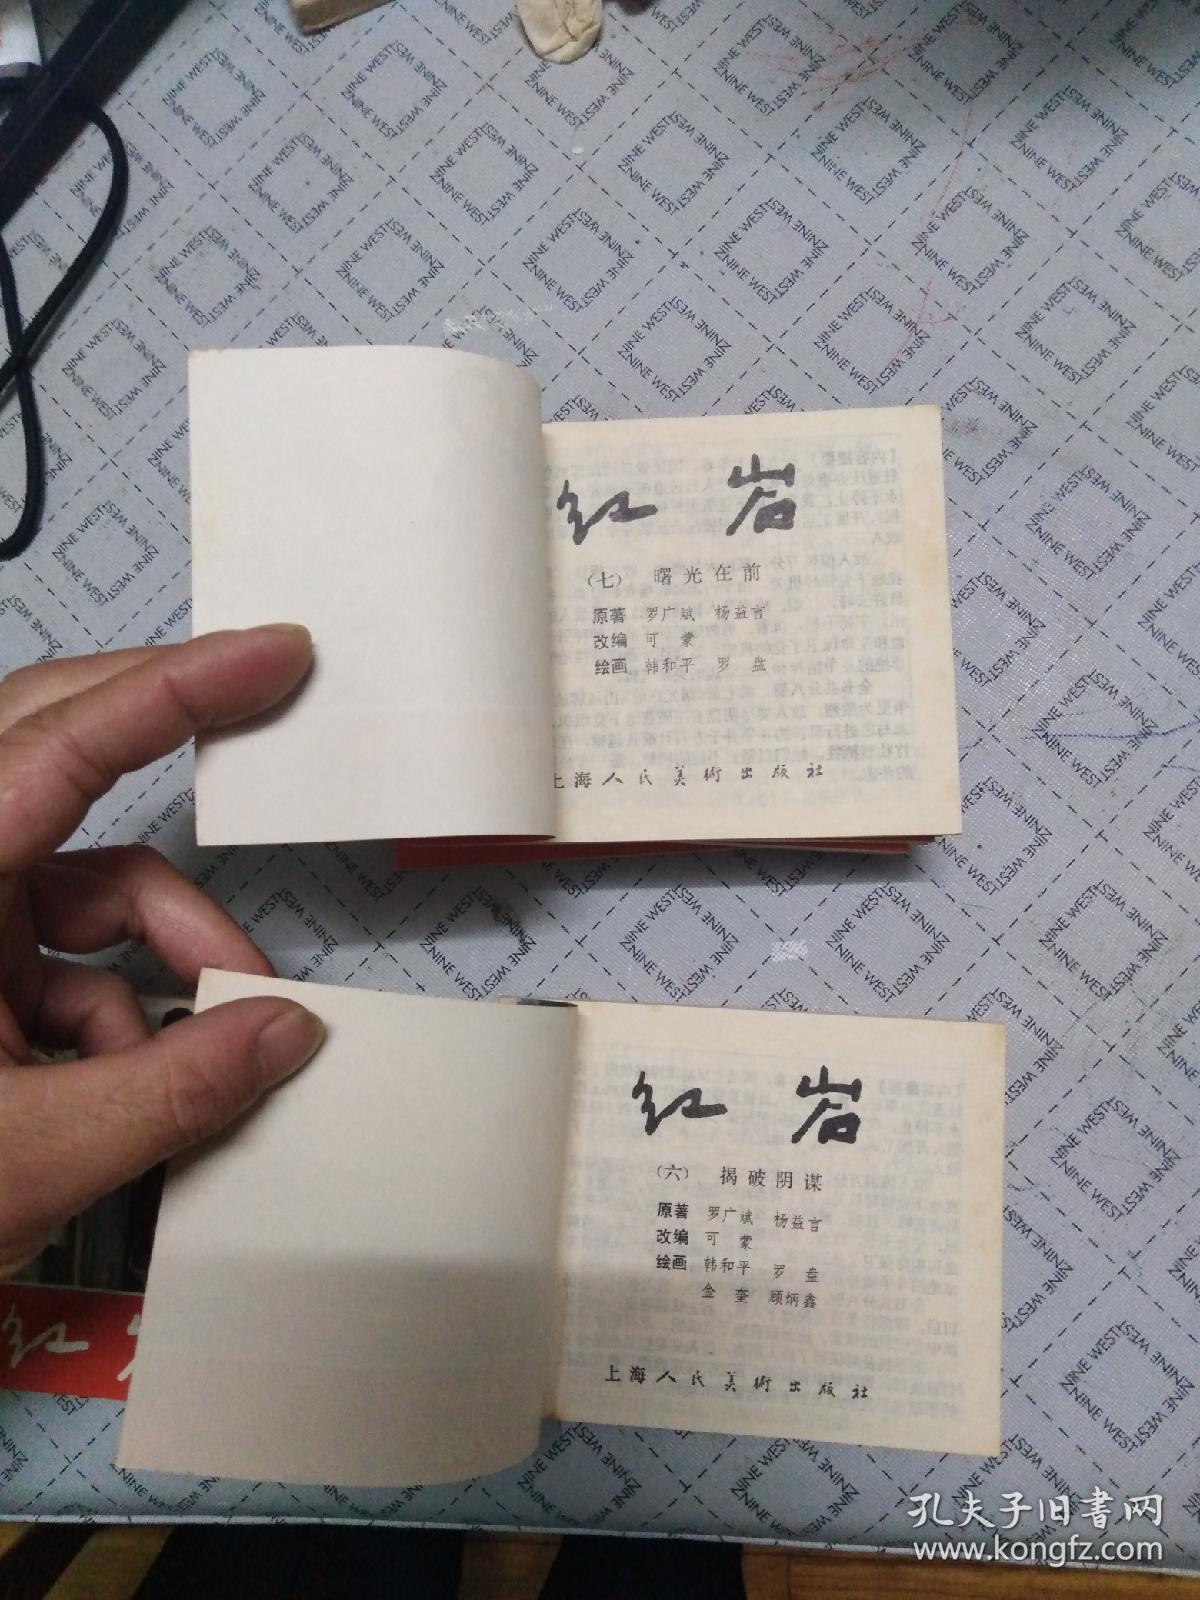 红岩
（七） 曙光在前
原著 罗广斌 杨益言
改编 可蒙
绘画 韩和平 罗盘
上海人民美術出版社
红岩
（六） 揭破阴谋
原著 罗广斌 杨益言
改编 可蒙
绘画 韩和平 罗盘
金奎 顾炳鑫
上海人民美術出版社
红岩
NINE WEST
孔夫子旧書网
www.kongfz.com